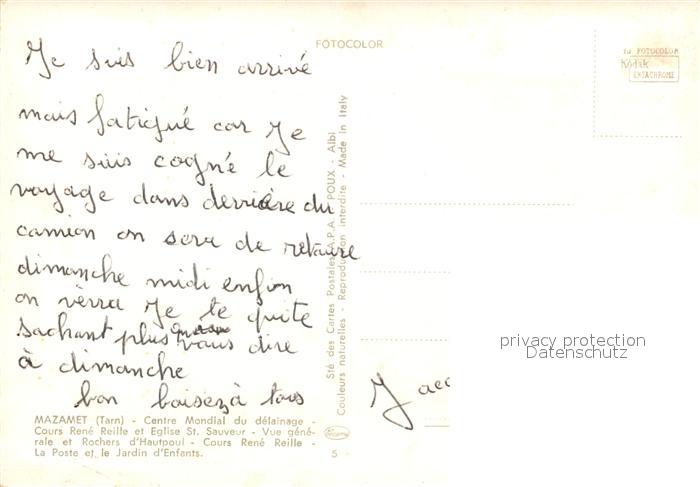 FOTOCOLOR
fu FOTOCOLOR
Kodak
EKTACHROME
Je suis bien arrivé
mais fatigué car Je
me suis cogné le
voyage dans derrière du
camion on sera de retoure
dimanche midi enfin
on vèrra Je te quite
sachant plus vous dire
à dimanche
bon baisezà tous
Jacq
Sté des Cartes Postales A.P.A. POUX - Albi
Couleurs naturelles - Reproduction interdite - Made in Italy
privacy protection
Datenschutz
MAZAMET (Tarn) - Centre Mondial du délainage -
Cours René Reille et Eglise St. Sauveur - Vue géné-
rale et Rochers d'Hautpoul - Cours René Reille -
La Poste et le Jardin d'Enfants.
5